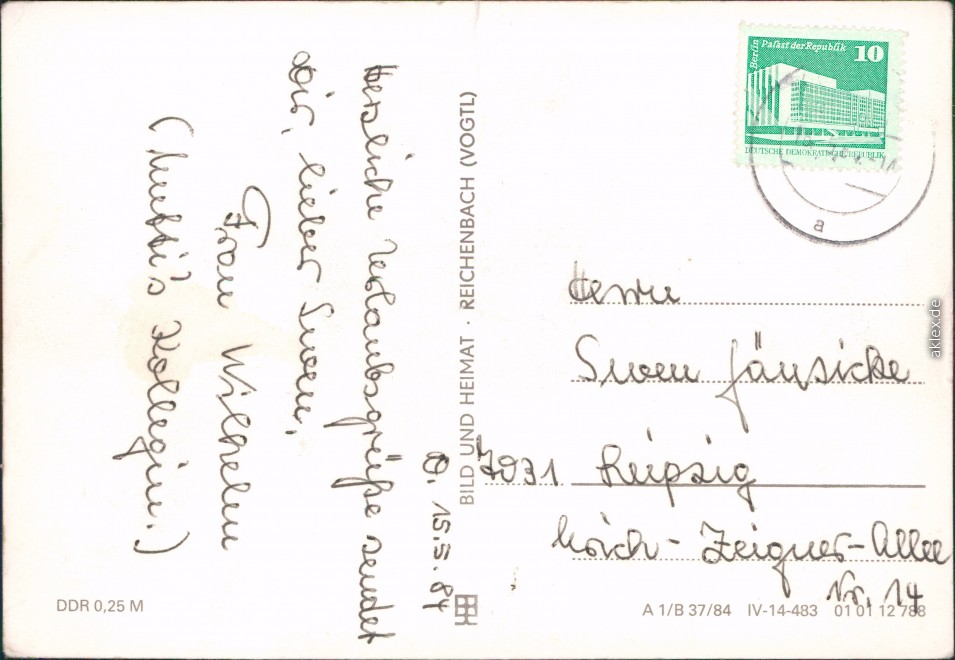 O. 15.5.84
Herzliche Urlaubsgrüße sendet
Dir, lieber Swen,
Frau Wilhelm
(Mutti's Kollegin.)
BILD UND HEIMAT · REICHENBACH (VOGTL)
Berlin
Palast der Republik 10
DEUTSCHE DEMOKRATISCHE REPUBLIK
a
Herrn
Swen Jänsicke
7031 Leipzig
Erich-Zeigner-Allee
Nr. 14
DDR 0,25 M
A 1/B 37/84 IV-14-483 01 01 12 788
aklex.de